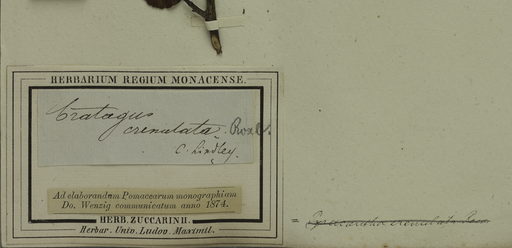 HERBARIUM REGIUM MONACENSE.
Crataegus
crenulata. Roxb.
C. Lindley.
Ad elaborandam Pomacearum monographiam
Do. Wenzig communicatum anno 1874.
HERB. ZUCCARINII.
Herbar. Univ. Ludov. Maximil.
= Pyracantha crenulata Roem